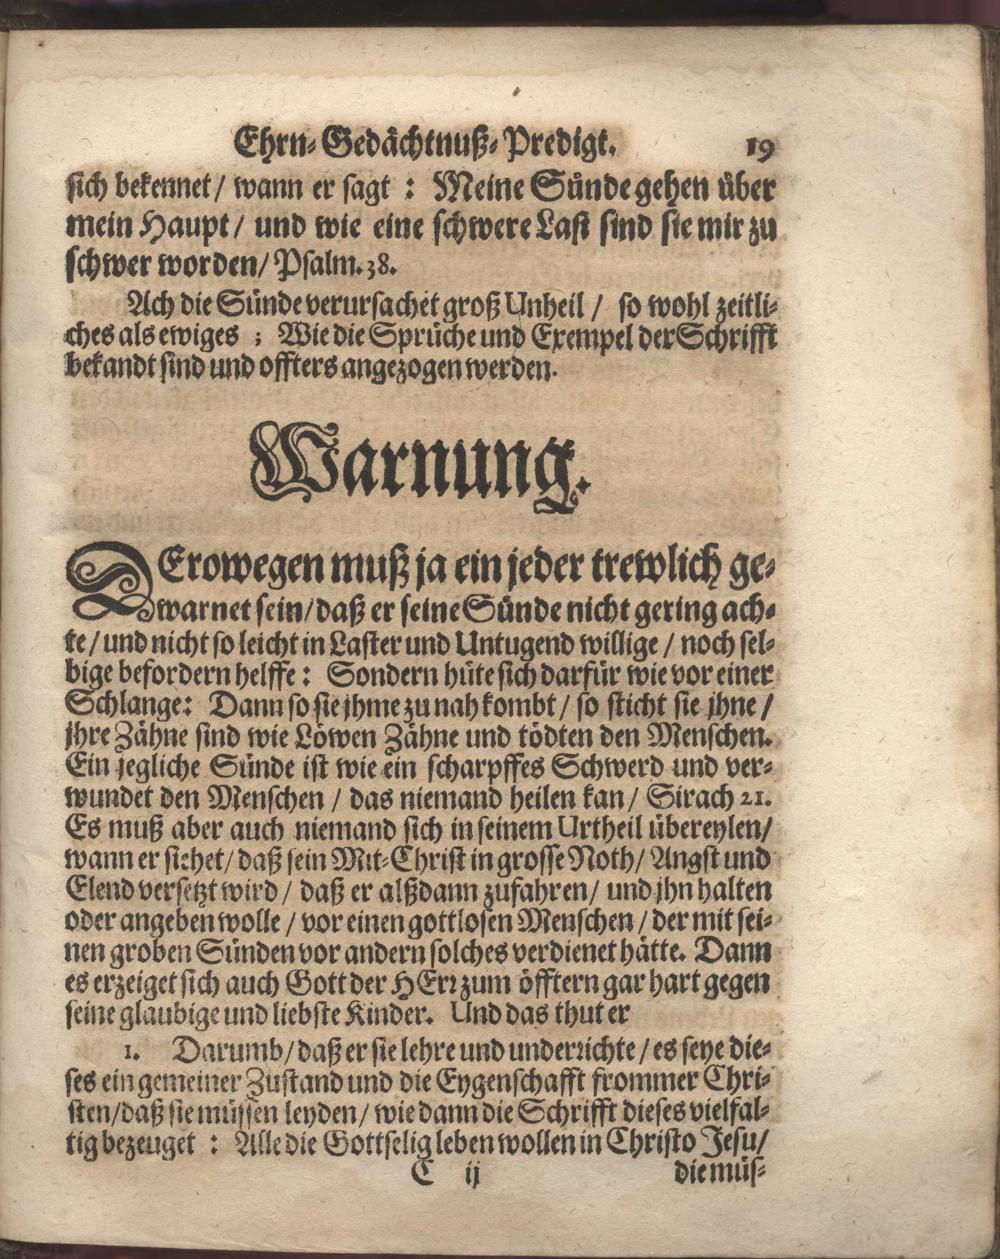 Ehrn-Gedächtnuß-Predigt. 19
sich bekennet/ wann er sagt : Meine Sünde gehen über
mein Haupt/ und wie eine schwere Last sind sie mir zu
schwer worden/ Psalm. 38.
Ach die Sünde verursachet groß Unheil / so wohl zeitli-
ches als ewiges ; Wie die Sprüche und Exempel der Schrifft
bekandt sind und offters angezogen werden.
Warnung.
DErowegen muß ja ein jeder trewlich ge-
warnet sein/ daß er seine Sünde nicht gering ach-
te/ und nicht so leicht in Laster und Untugend willige / noch sel-
bige befordern helffe : Sondern hüte sich darfür wie vor einer
Schlange: Dann so sie jhme zu nah kombt / so sticht sie jhne /
jhre Zähne sind wie Löwen Zähne und tödten den Menschen.
Ein jegliche Sünde ist wie ein scharpffes Schwerd und ver-
wundet den Menschen / das niemand heilen kan/ Sirach 21.
Es muß aber auch niemand sich in seinem Urtheil übereylen/
wann er sihet/ daß sein Mit-Christ in grosse Noth/ Angst und
Elend versetzt wird / daß er alßdann zufahren/ und jhn halten
oder angeben wolle / vor einen gottlosen Menschen / der mit sei-
nen groben Sünden vor andern solches verdienet hätte. Dann
es erzeiget sich auch Gott der HErr zum öfftern gar hart gegen
seine glaubige und liebste Kinder. Und das thut er
1. Darumb/ daß er sie lehre und underrichte / es seye die-
ses ein gemeiner Zustand und die Eygenschafft frommer Chri-
sten/ daß sie müssen leyden/ wie dann die Schrifft dieses vielfal-
tig bezeuget : Alle die Gottselig leben wollen in Christo Jesu/
C ij die müs-